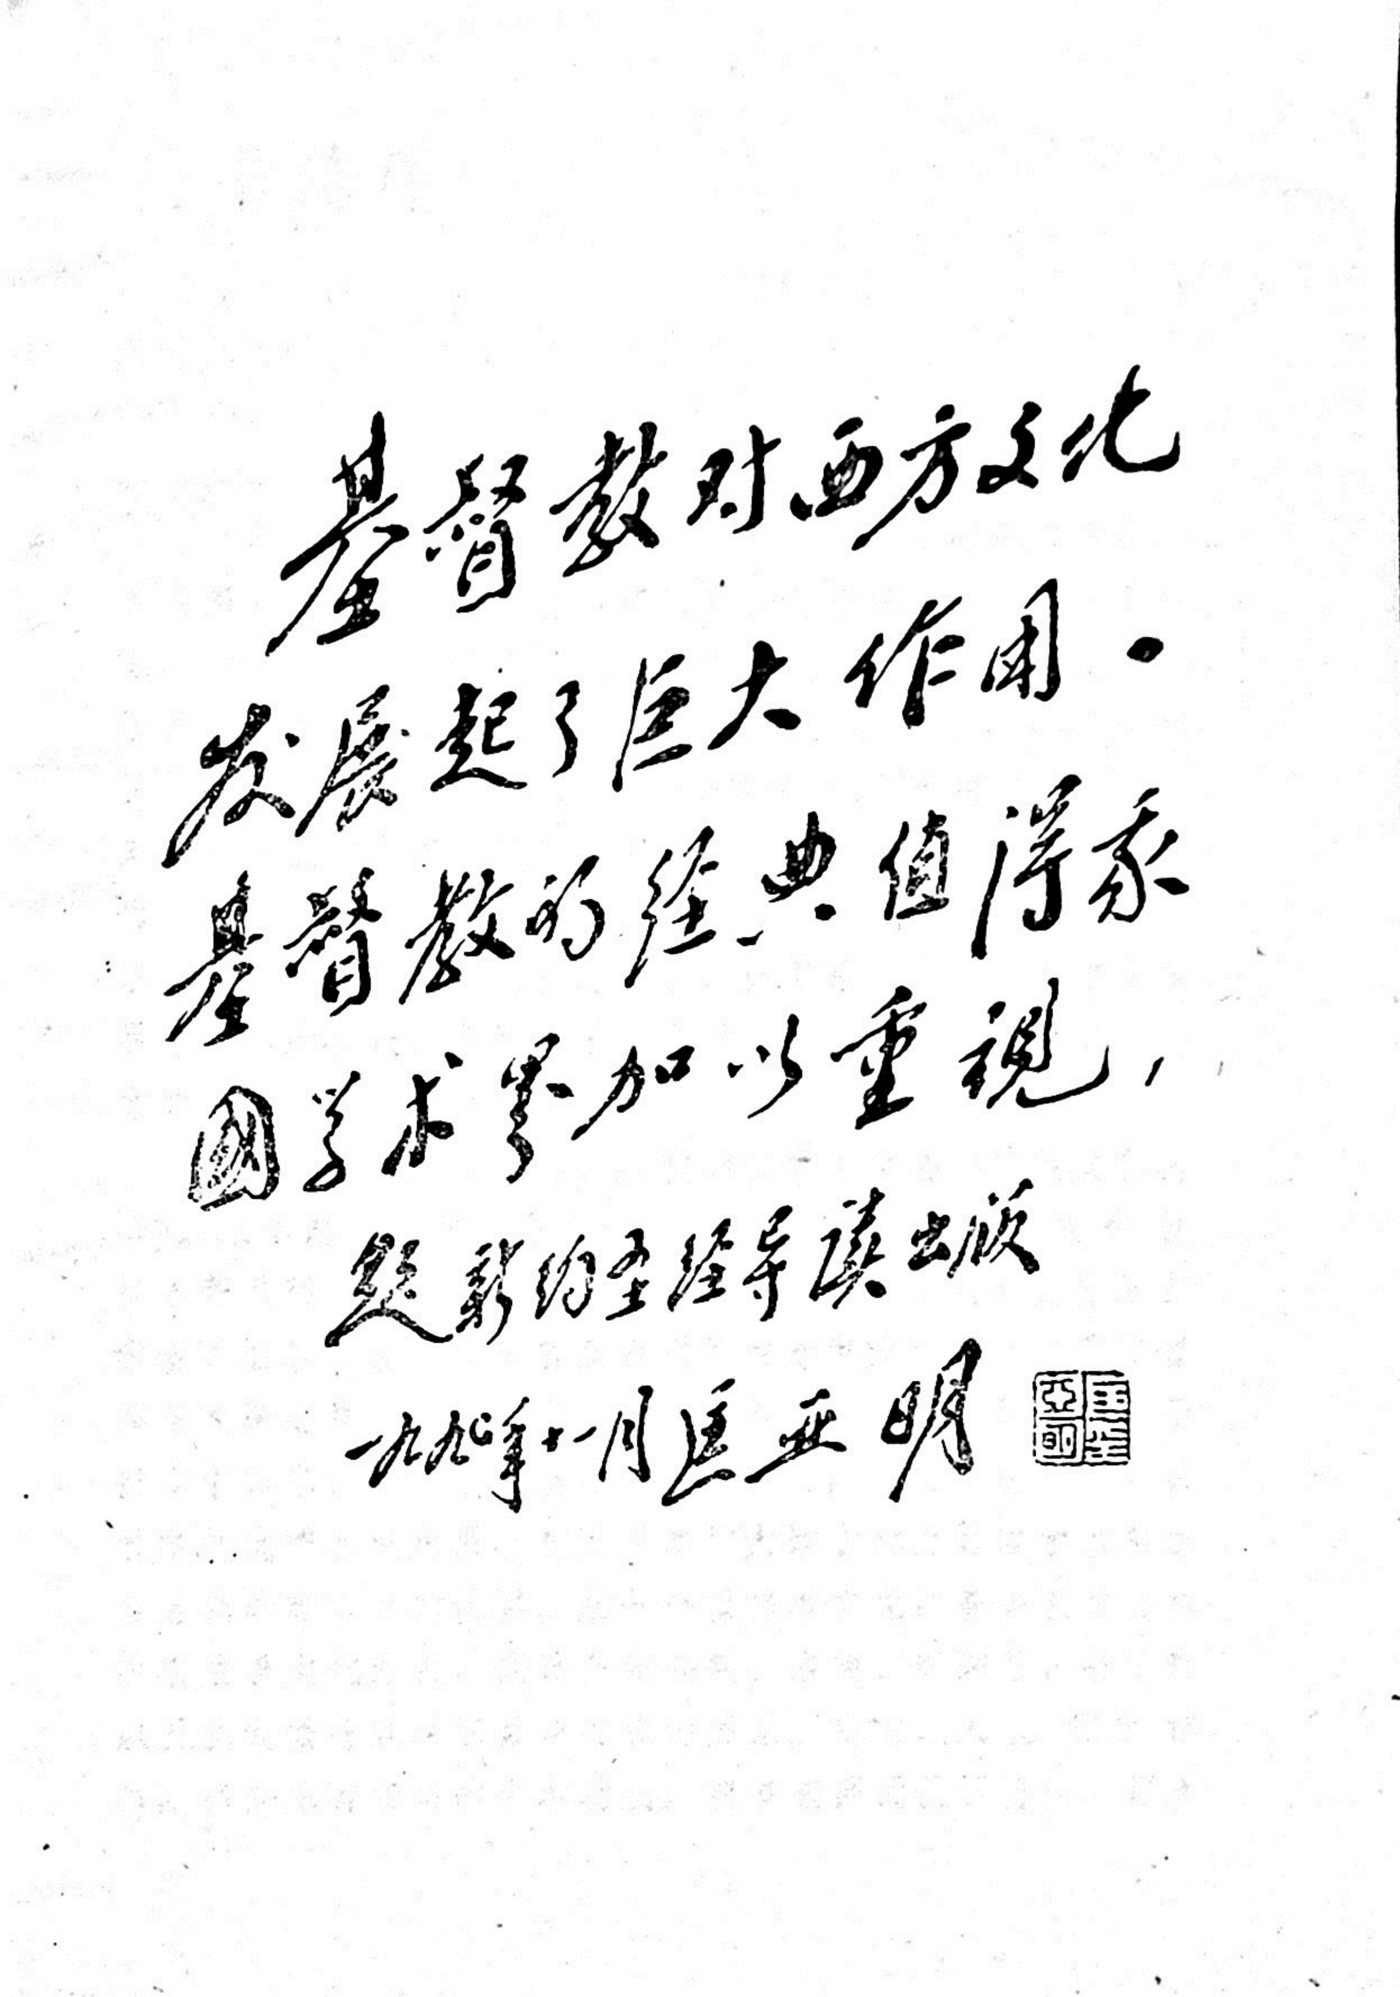 基督教对西方文化
发展起了巨大作用.
基督教的经典值得我
國学术界加以重視,
题新约圣经导读出版
一九九〇年十一月匡亚明
匡亞明